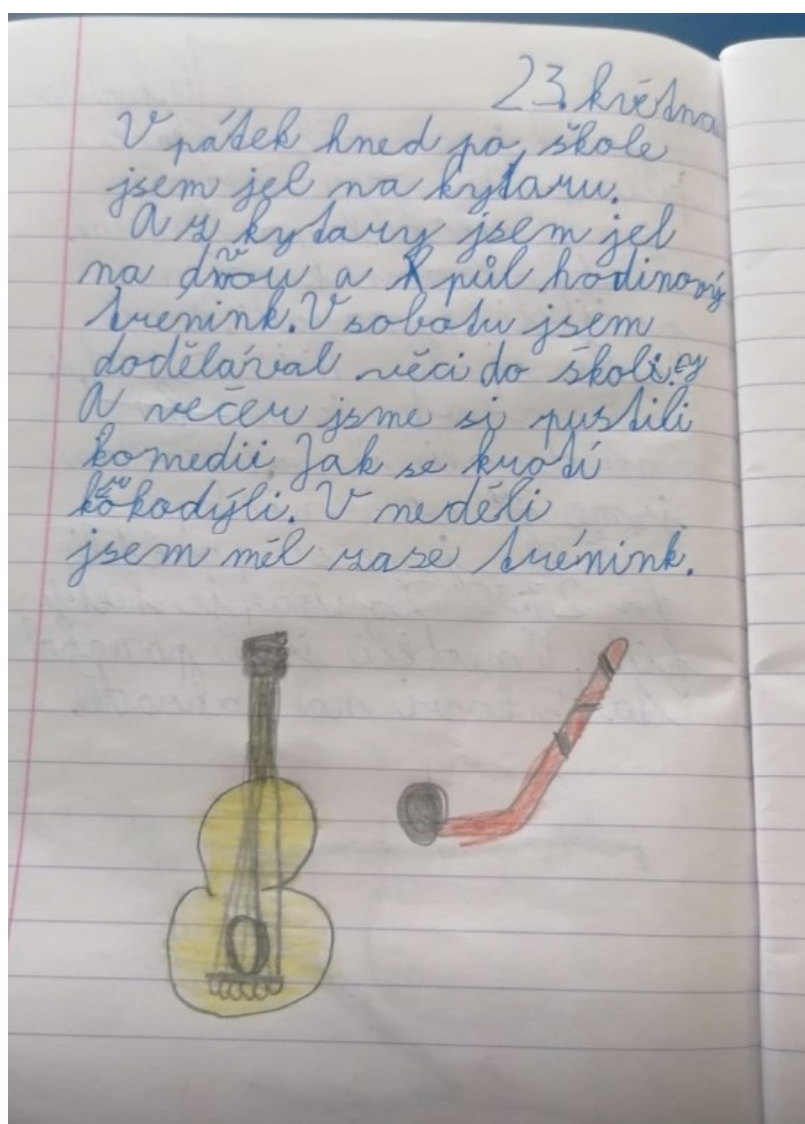 23. května
V pátek hned po škole
jsem jel na kytaru.
A z kytary jsem jel
na dvou a půl hodinový
trenink. V sobotu jsem
dodělával věci do školy.
A večer jsme si pustili
komedii Jak se krotí
krokodýli. V neděli
jsem měl zase trénink.